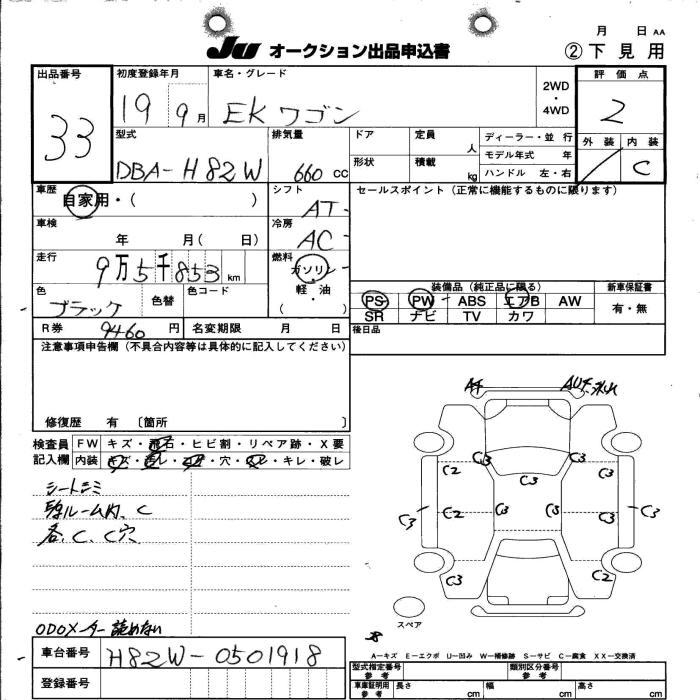 月 日 AA
JU オークション出品申込書 ②下見用
出品番号 初度登録年月 車名・グレード 2WD・4WD 評価点
33 19 9月 EKワゴン 2
型式 排気量 ドア 定員 人 ディーラー・並行 外装 内装
DBA-H82W 660 cc 形状 積載 kg モデル年式 年 C
ハンドル 左・右
車歴 シフト セールスポイント (正常に機能するものに限ります)
自家用・( ) AT
車検 冷房
年 月( 日) AC
走行 燃料
9万5千853 km ガソリン
色 色替 色コード 軽・油
ブラック ( )
装備品 (純正品に限る) 新車保証書
PS PW ABS エアB AW 有・無
SR ナビ TV カワ
R券 9460 円 名変期限 月 日 後日品
注意事項申告欄 (不具合内容等は具体的に記入してください)
修復歴 有 〔箇所 〕
検査員 FW キズ・飛石・ヒビ割・リペア跡・X要
記入欄 内装 キズ・ ・ ・穴・ ・キレ・破レ
シートシミ
ルーム内、C
各、C、C穴
ODOメーター読めない
C2 C3 C3 C3
C3 C2 C3 C3 C3 C3
C3 C2
スペア
A-キズ E-エクボ U-凹み W-補修跡 S-サビ C-腐食 XX-交換済
車台番号 H82W-0501918
登録番号
型式指定番号 参考 類別区分番号 参考
車庫証明用 参考 長さ cm 幅 cm 高さ cm